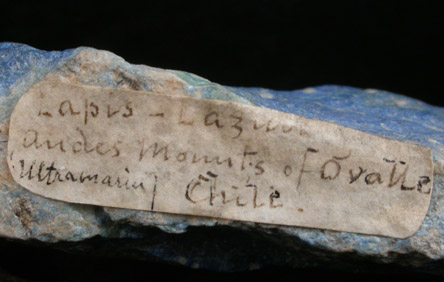 Lapis - Lazuli
andes Mounts of Ovalle
(Ultramarin) Chile.